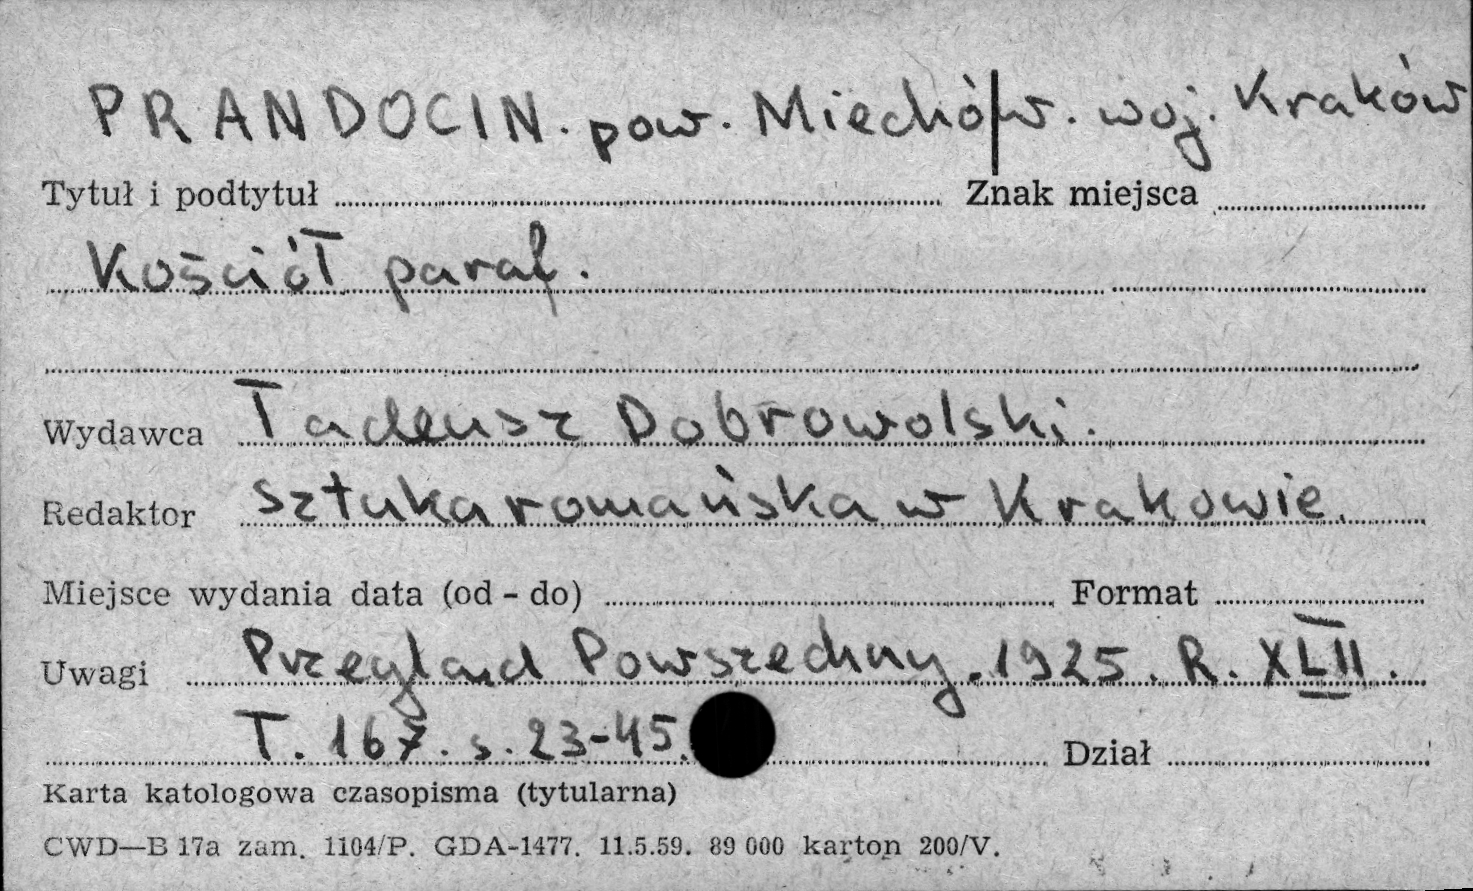 PRANDOCIN. pow. Miechów. woj. Kraków
Tytuł i podtytuł Znak miejsca
Kościół paraf.
Wydawca Tadeusz Dobrowolski.
Redaktor Sztuka romańska w Krakowie.
Miejsce wydania data (od - do) Format
Uwagi Przegląd Powszechny. 1925. R. XLII.
T. 167. s. 23-45. Dział
Karta katologowa czasopisma (tytularna)
CWD—B 17a zam. 1104/P. GDA-1477. 11.5.59. 89 000 karton 200/V.